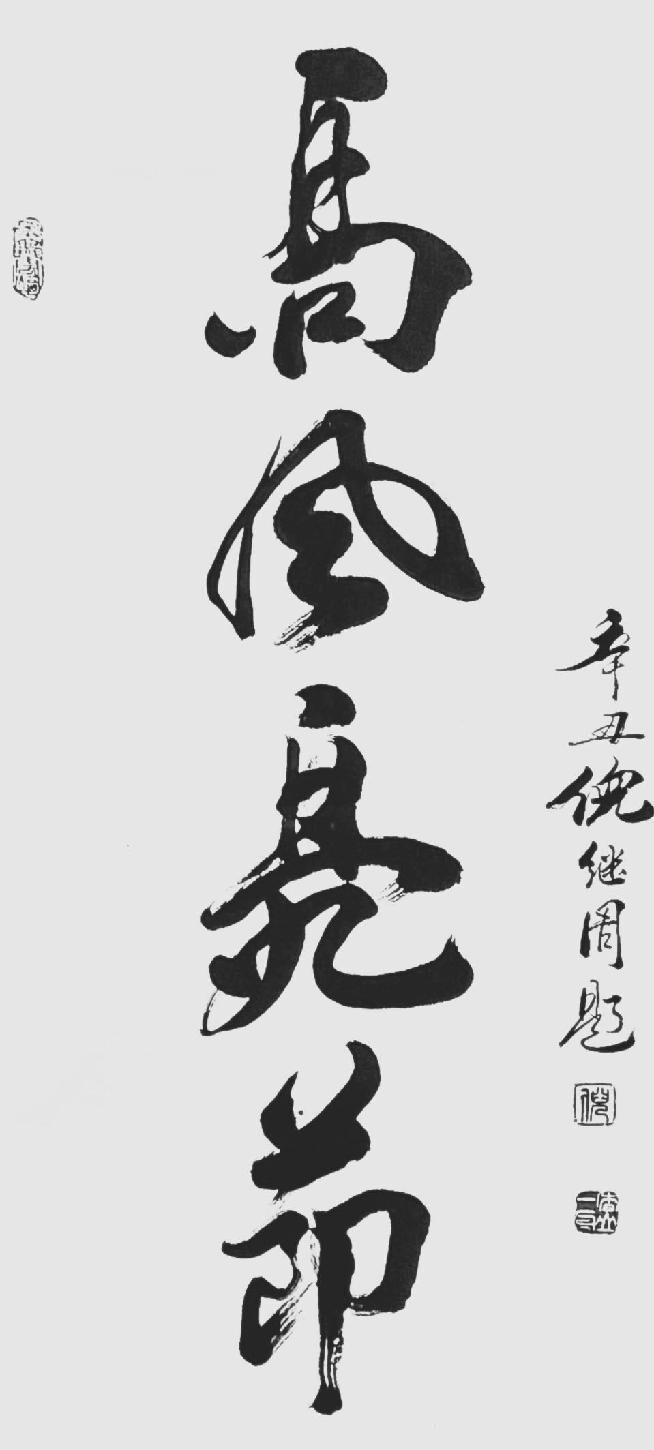 高风亮节
辛丑倪继周题
倪